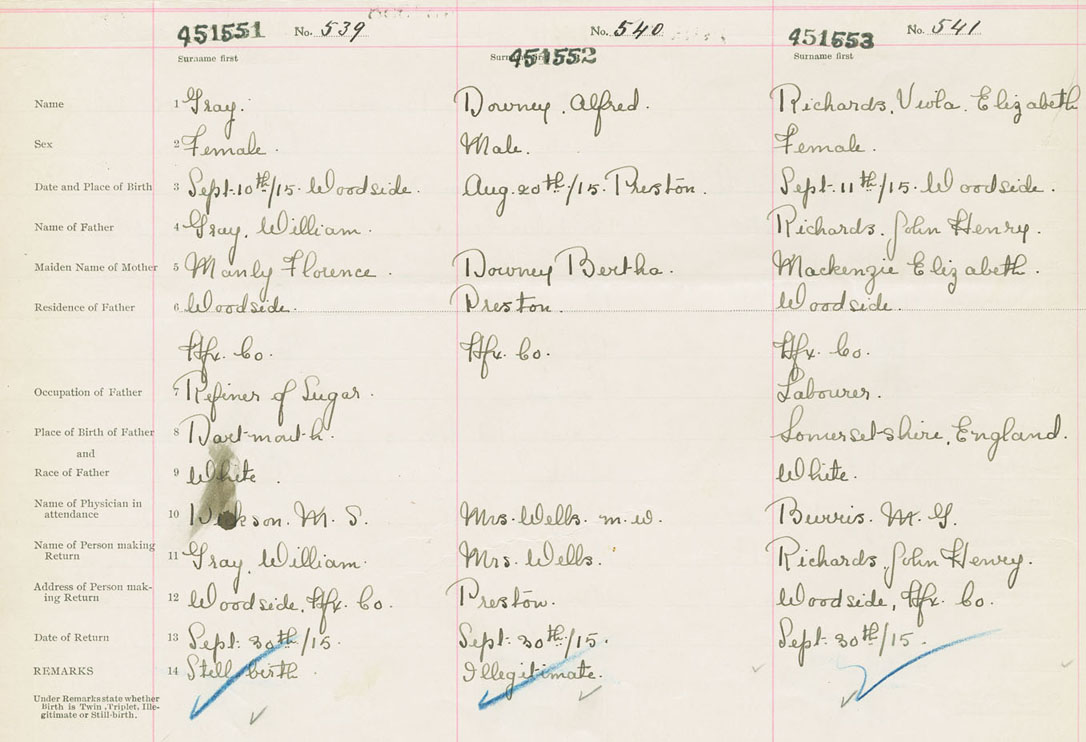 451551 No. 539 No. 540 451553 No. 541
Surname first Surname first 451552 Surname first
Name 1 Gray. Downey, Alfred. Richards, Viola Elizabeth
Sex 2 Female. Male. Female.
Date and Place of Birth 3 Sept. 10th/15. Woodside. Aug. 20th/15. Preston. Sept. 11th/15. Woodside.
Name of Father 4 Gray, William. Richards, John Henry.
Maiden Name of Mother 5 Manly Florence. Downey Bertha. Mackenzie Elizabeth.
Residence of Father 6 Woodside. Preston. Woodside.
Hfx. Co. Hfx. Co. Hfx. Co.
Occupation of Father 7 Refiner of Sugar. Labourer.
Place of Birth of Father 8 Dartmouth. Somersetshire, England.
and
Race of Father 9 White. White.
Name of Physician in
attendance 10 M. S. Mrs. Wells. m. w. Burris. M. G.
Name of Person making
Return 11 Gray, William. Mrs. Wells. Richards, John Henry.
Address of Person mak-
ing Return 12 Woodside, Hfx. Co. Preston. Woodside, Hfx. Co.
Date of Return 13 Sept. 30th/15. Sept. 30th/15. Sept. 30th/15.
REMARKS 14 Still birth Illegitimate.
Under Remarks state whether
Birth is Twin, Triplet, Ille-
gitimate or Still-birth.